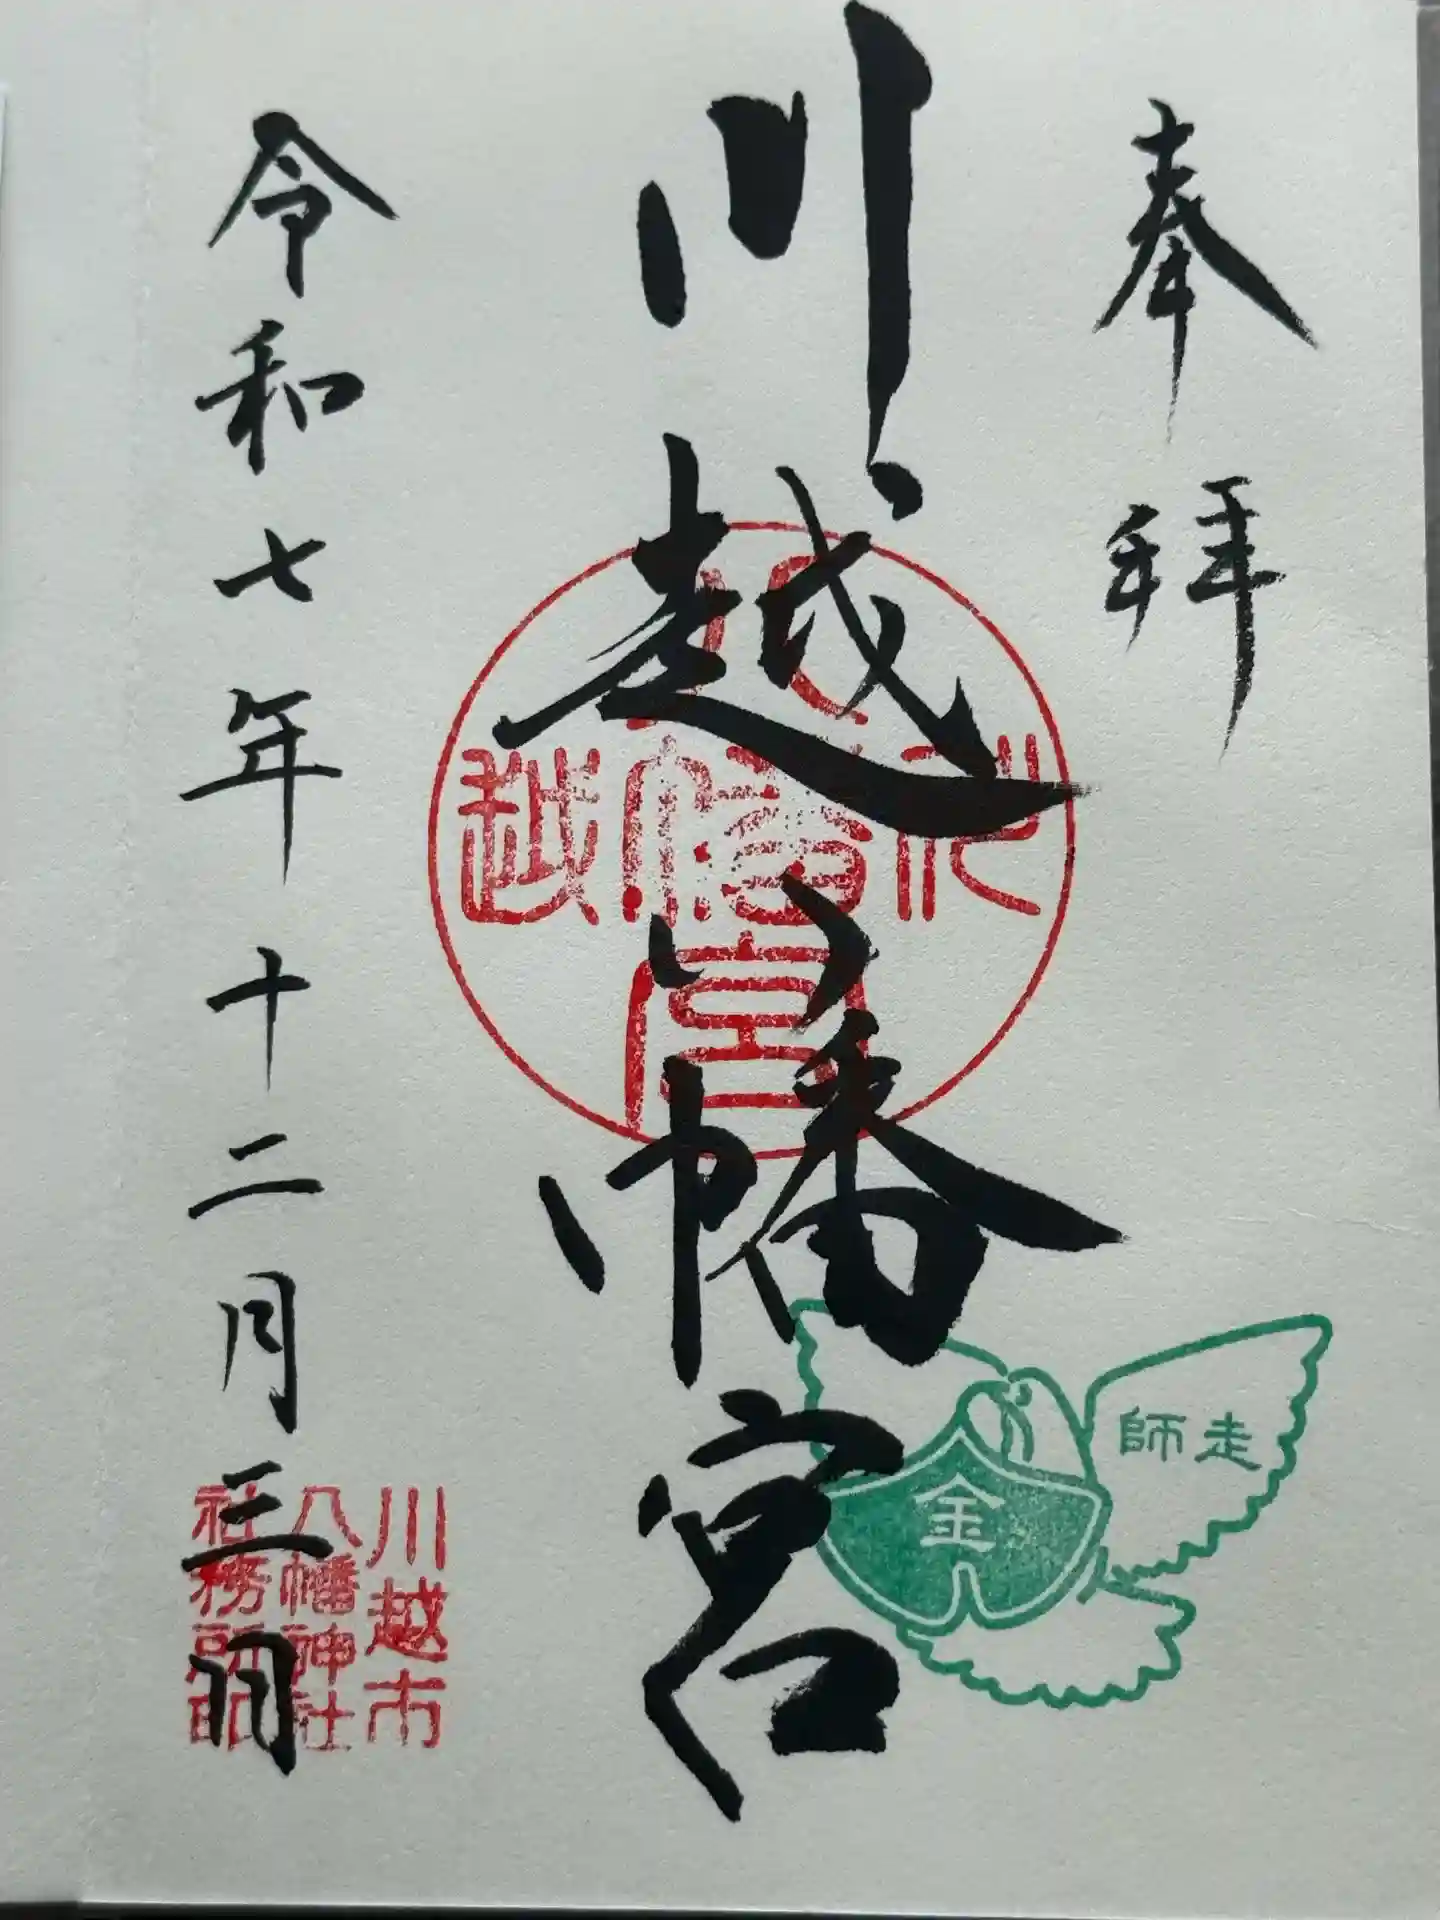 奉拝
川越八幡宮
八幡宮
川越
師走
金
令和七年十二月三日
川越市
八幡神社
社務所印